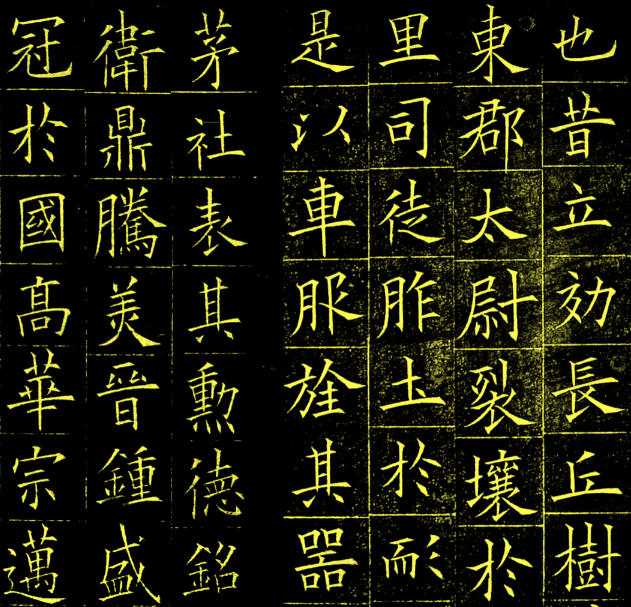 也昔立効長丘樹
東郡太尉裂壤於
里司徒胙土於耏
是以車服旌其器
茅社表其勲德銘
衛鼎騰美晉鍾盛
冠於國髙華宗邁